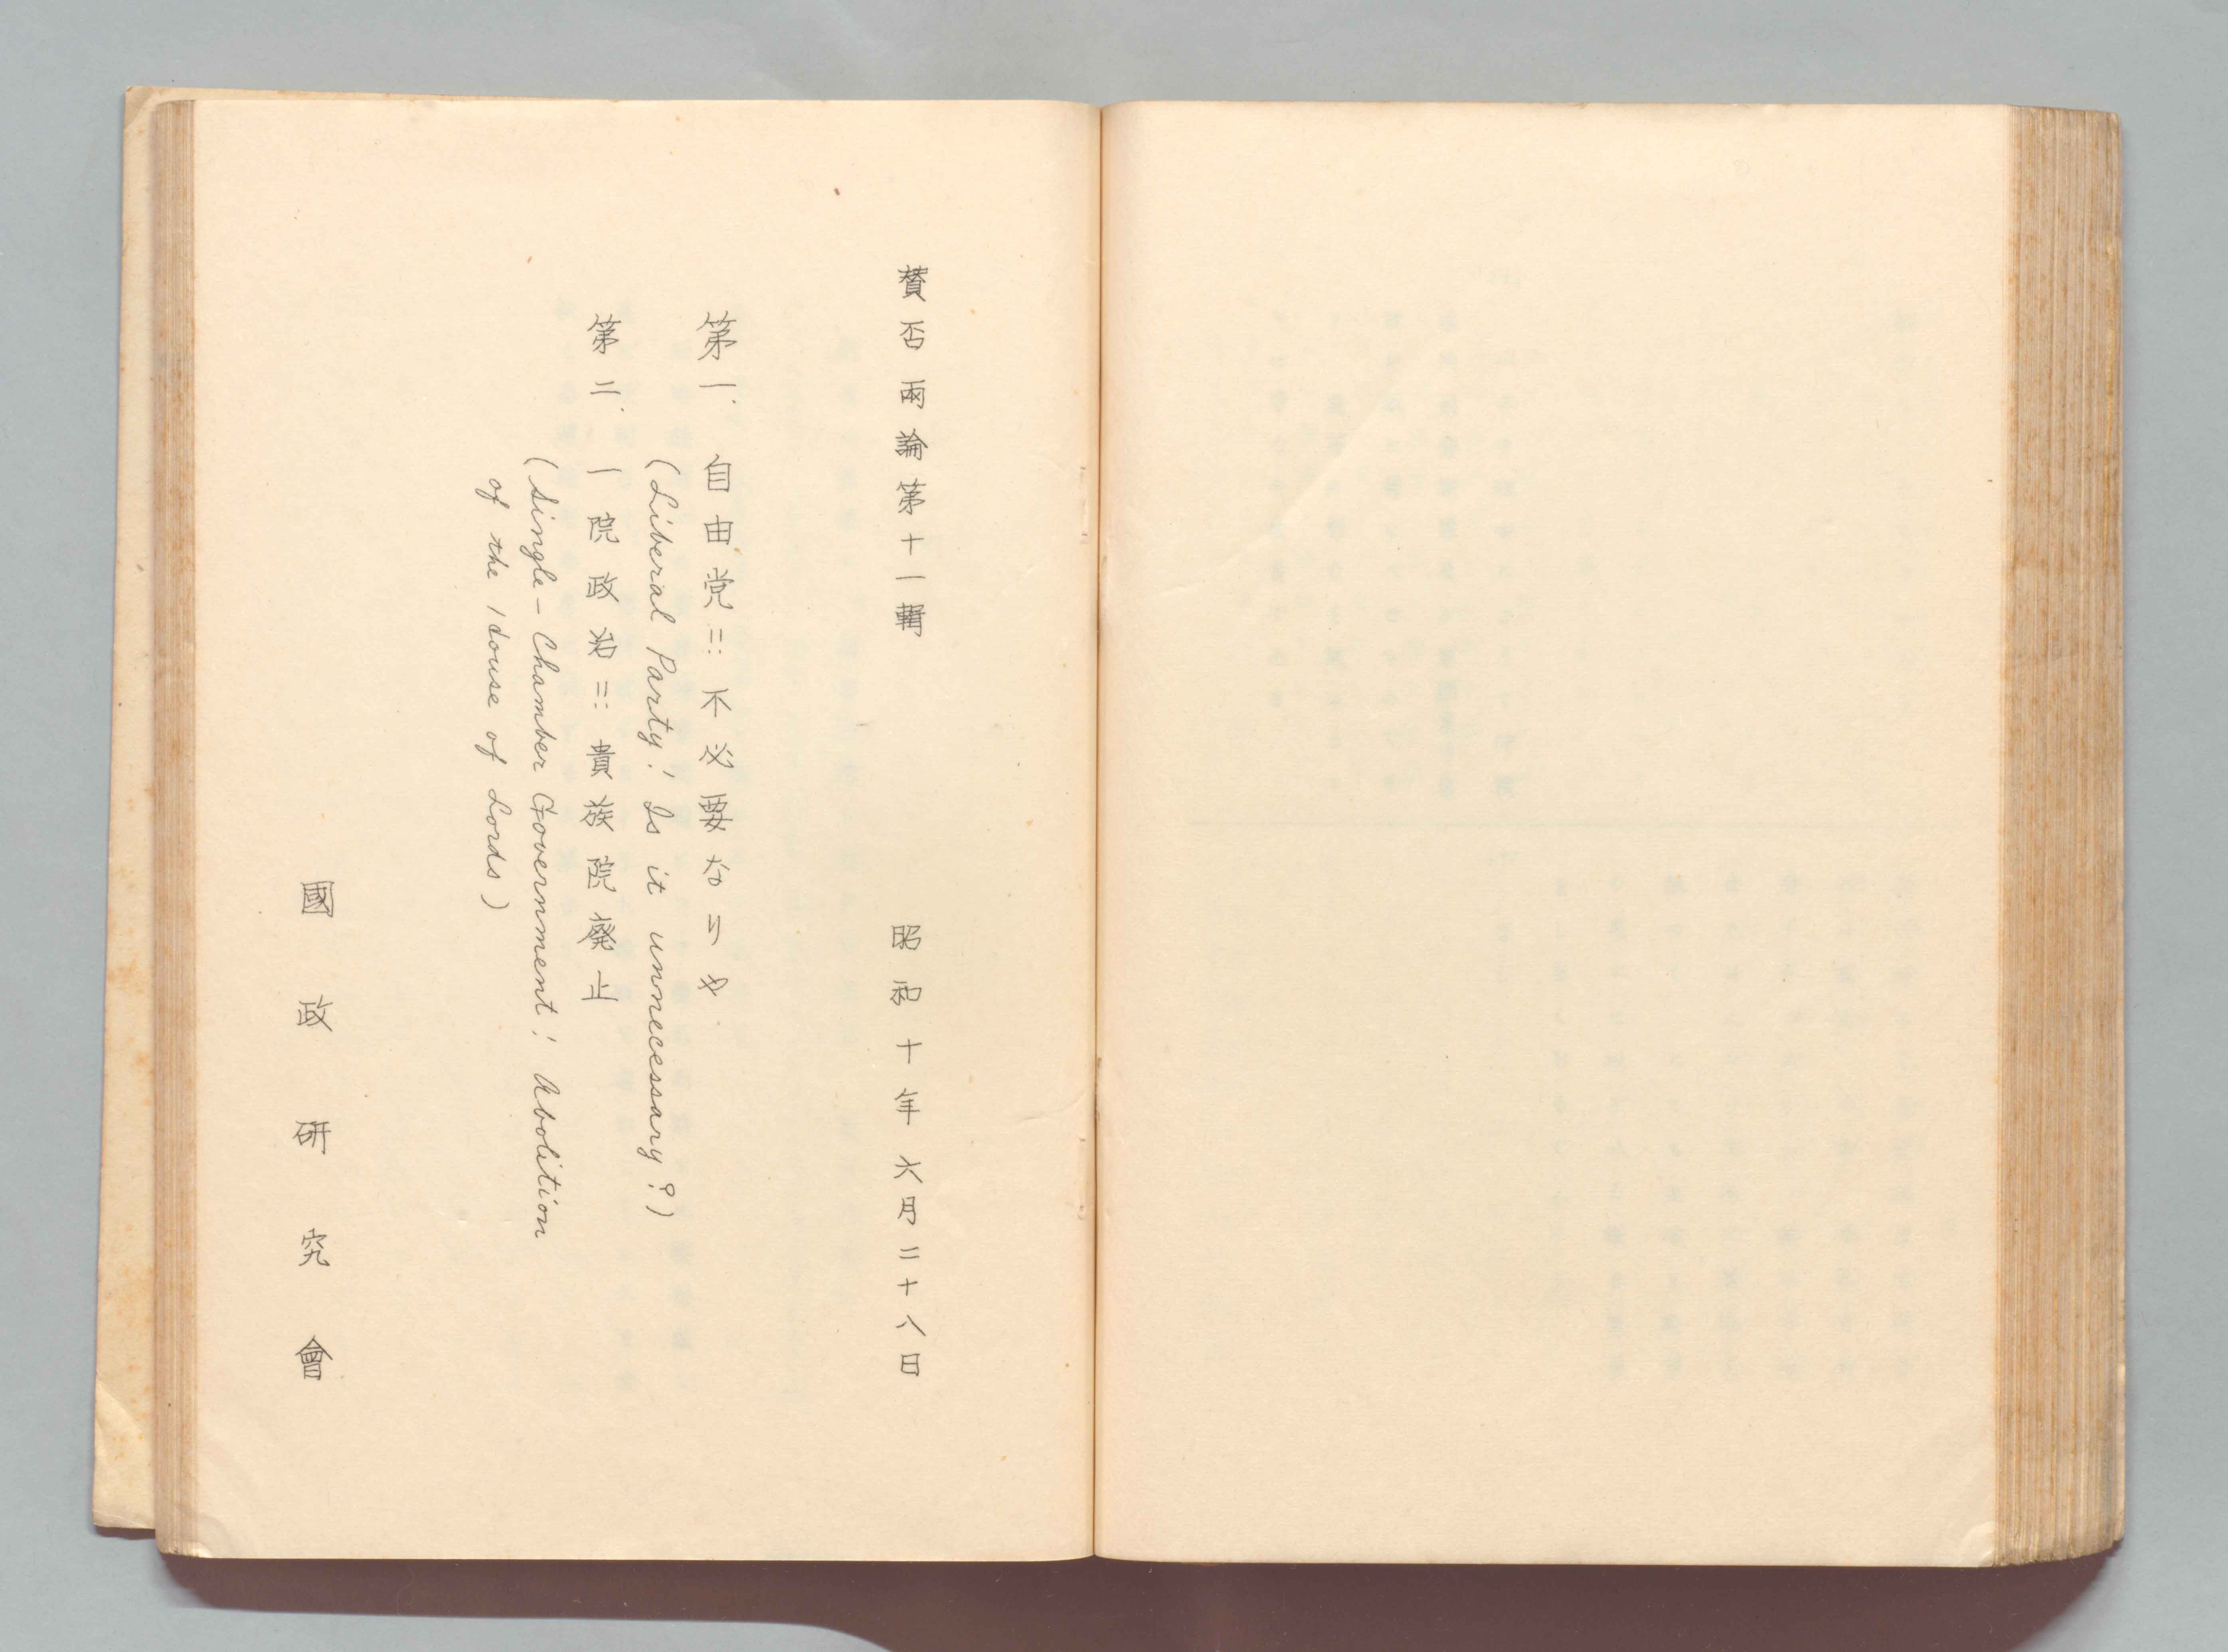 賛否兩論第十一輯
昭和十年六月二十八日
第一. 自由党!! 不必要なりや
(Liberal Party! Is it unnecessary?)
第二. 一院政治!! 貴族院廃止
(Single-Chamber Government! Abolition
of the House of Lords)
國政研究會